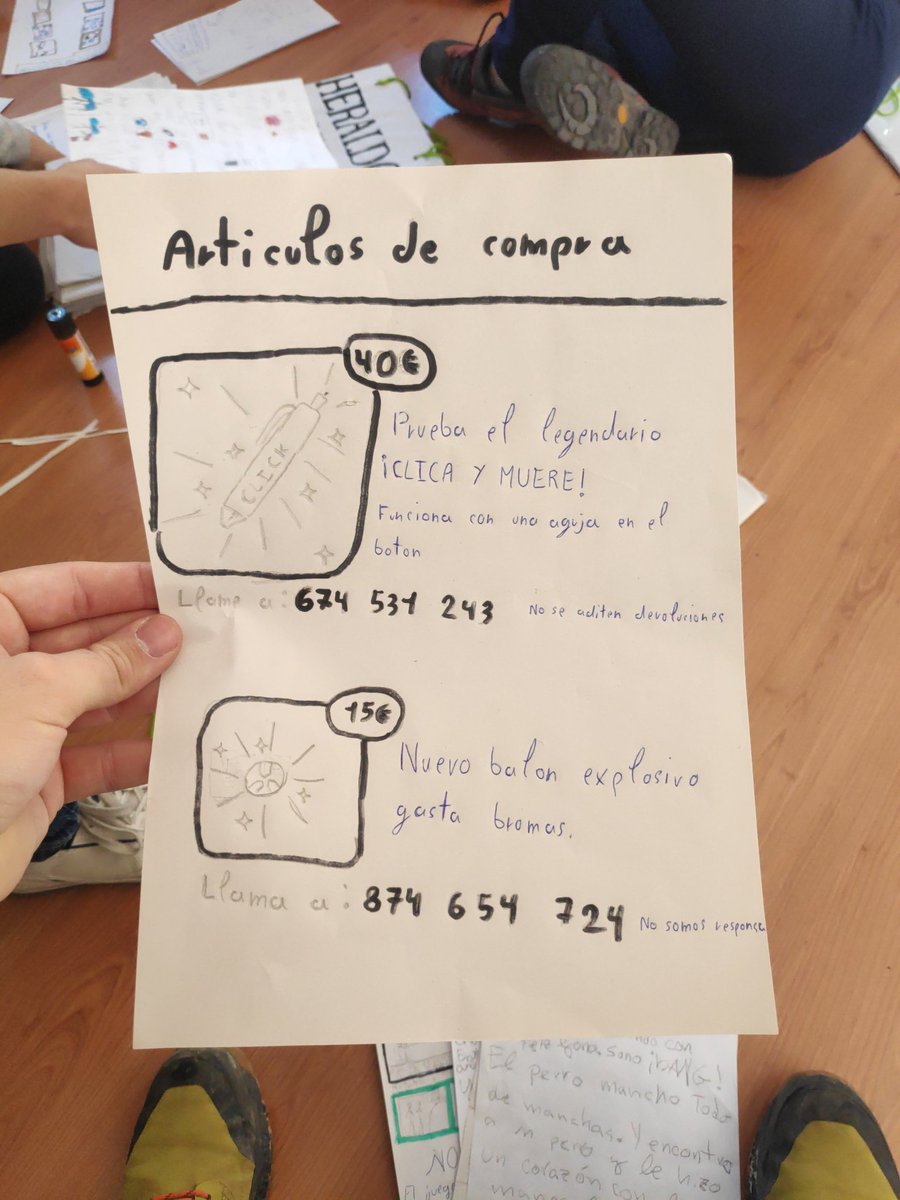 HERALDO
Articulos de compra
40€
CLICK
Prueba el legendario
¡CLICA Y MUERE!
Funciona con una aguja en el
boton
Llame a: 674 531 243 No se aditen devoluciones
15€
Nuevo balon explosivo
gasta bromas.
Llama a: 874 654 724 No somos responsa
con
sono ¡BANG!
El perro mancho Todo
de manchas. Y encontro
a perro y le hizo
un corazón con
NO
El juego